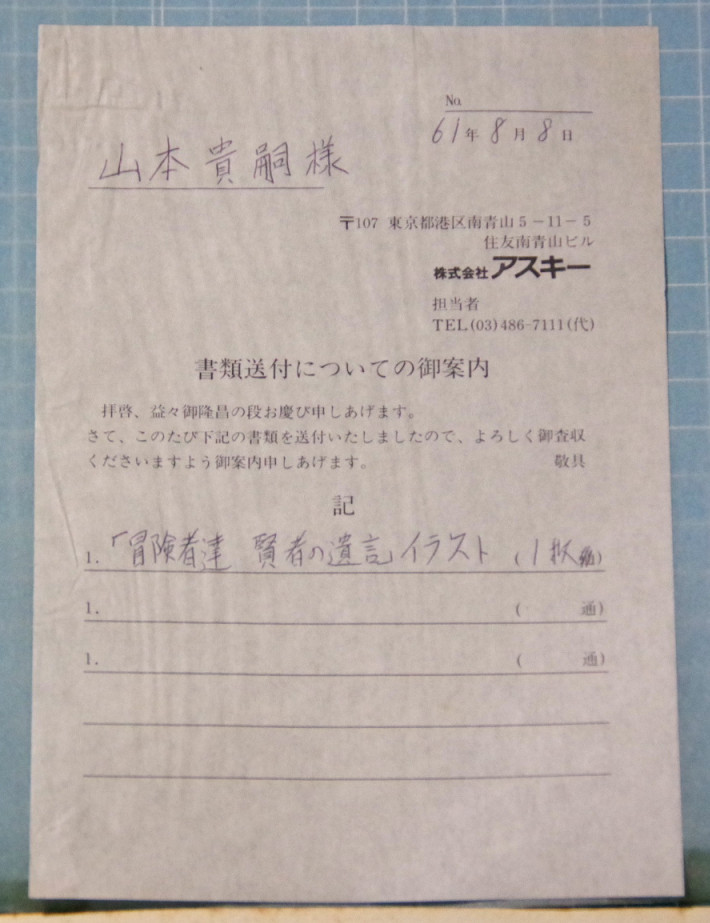 No.
61年8月8日
山本貴嗣様
〒107 東京都港区南青山5-11-5
住友南青山ビル
株式会社アスキー
担当者
TEL(03)486-7111(代)
書類送付についての御案内
拝啓、益々御隆昌の段お慶び申しあげます。
さて、このたび下記の書類を送付いたしましたので、よろしく御査収
くださいますよう御案内申しあげます。 敬具
記
1. 「冒険者達 賢者の遺言」イラスト (1枚通)
1. ( 通)
1. ( 通)